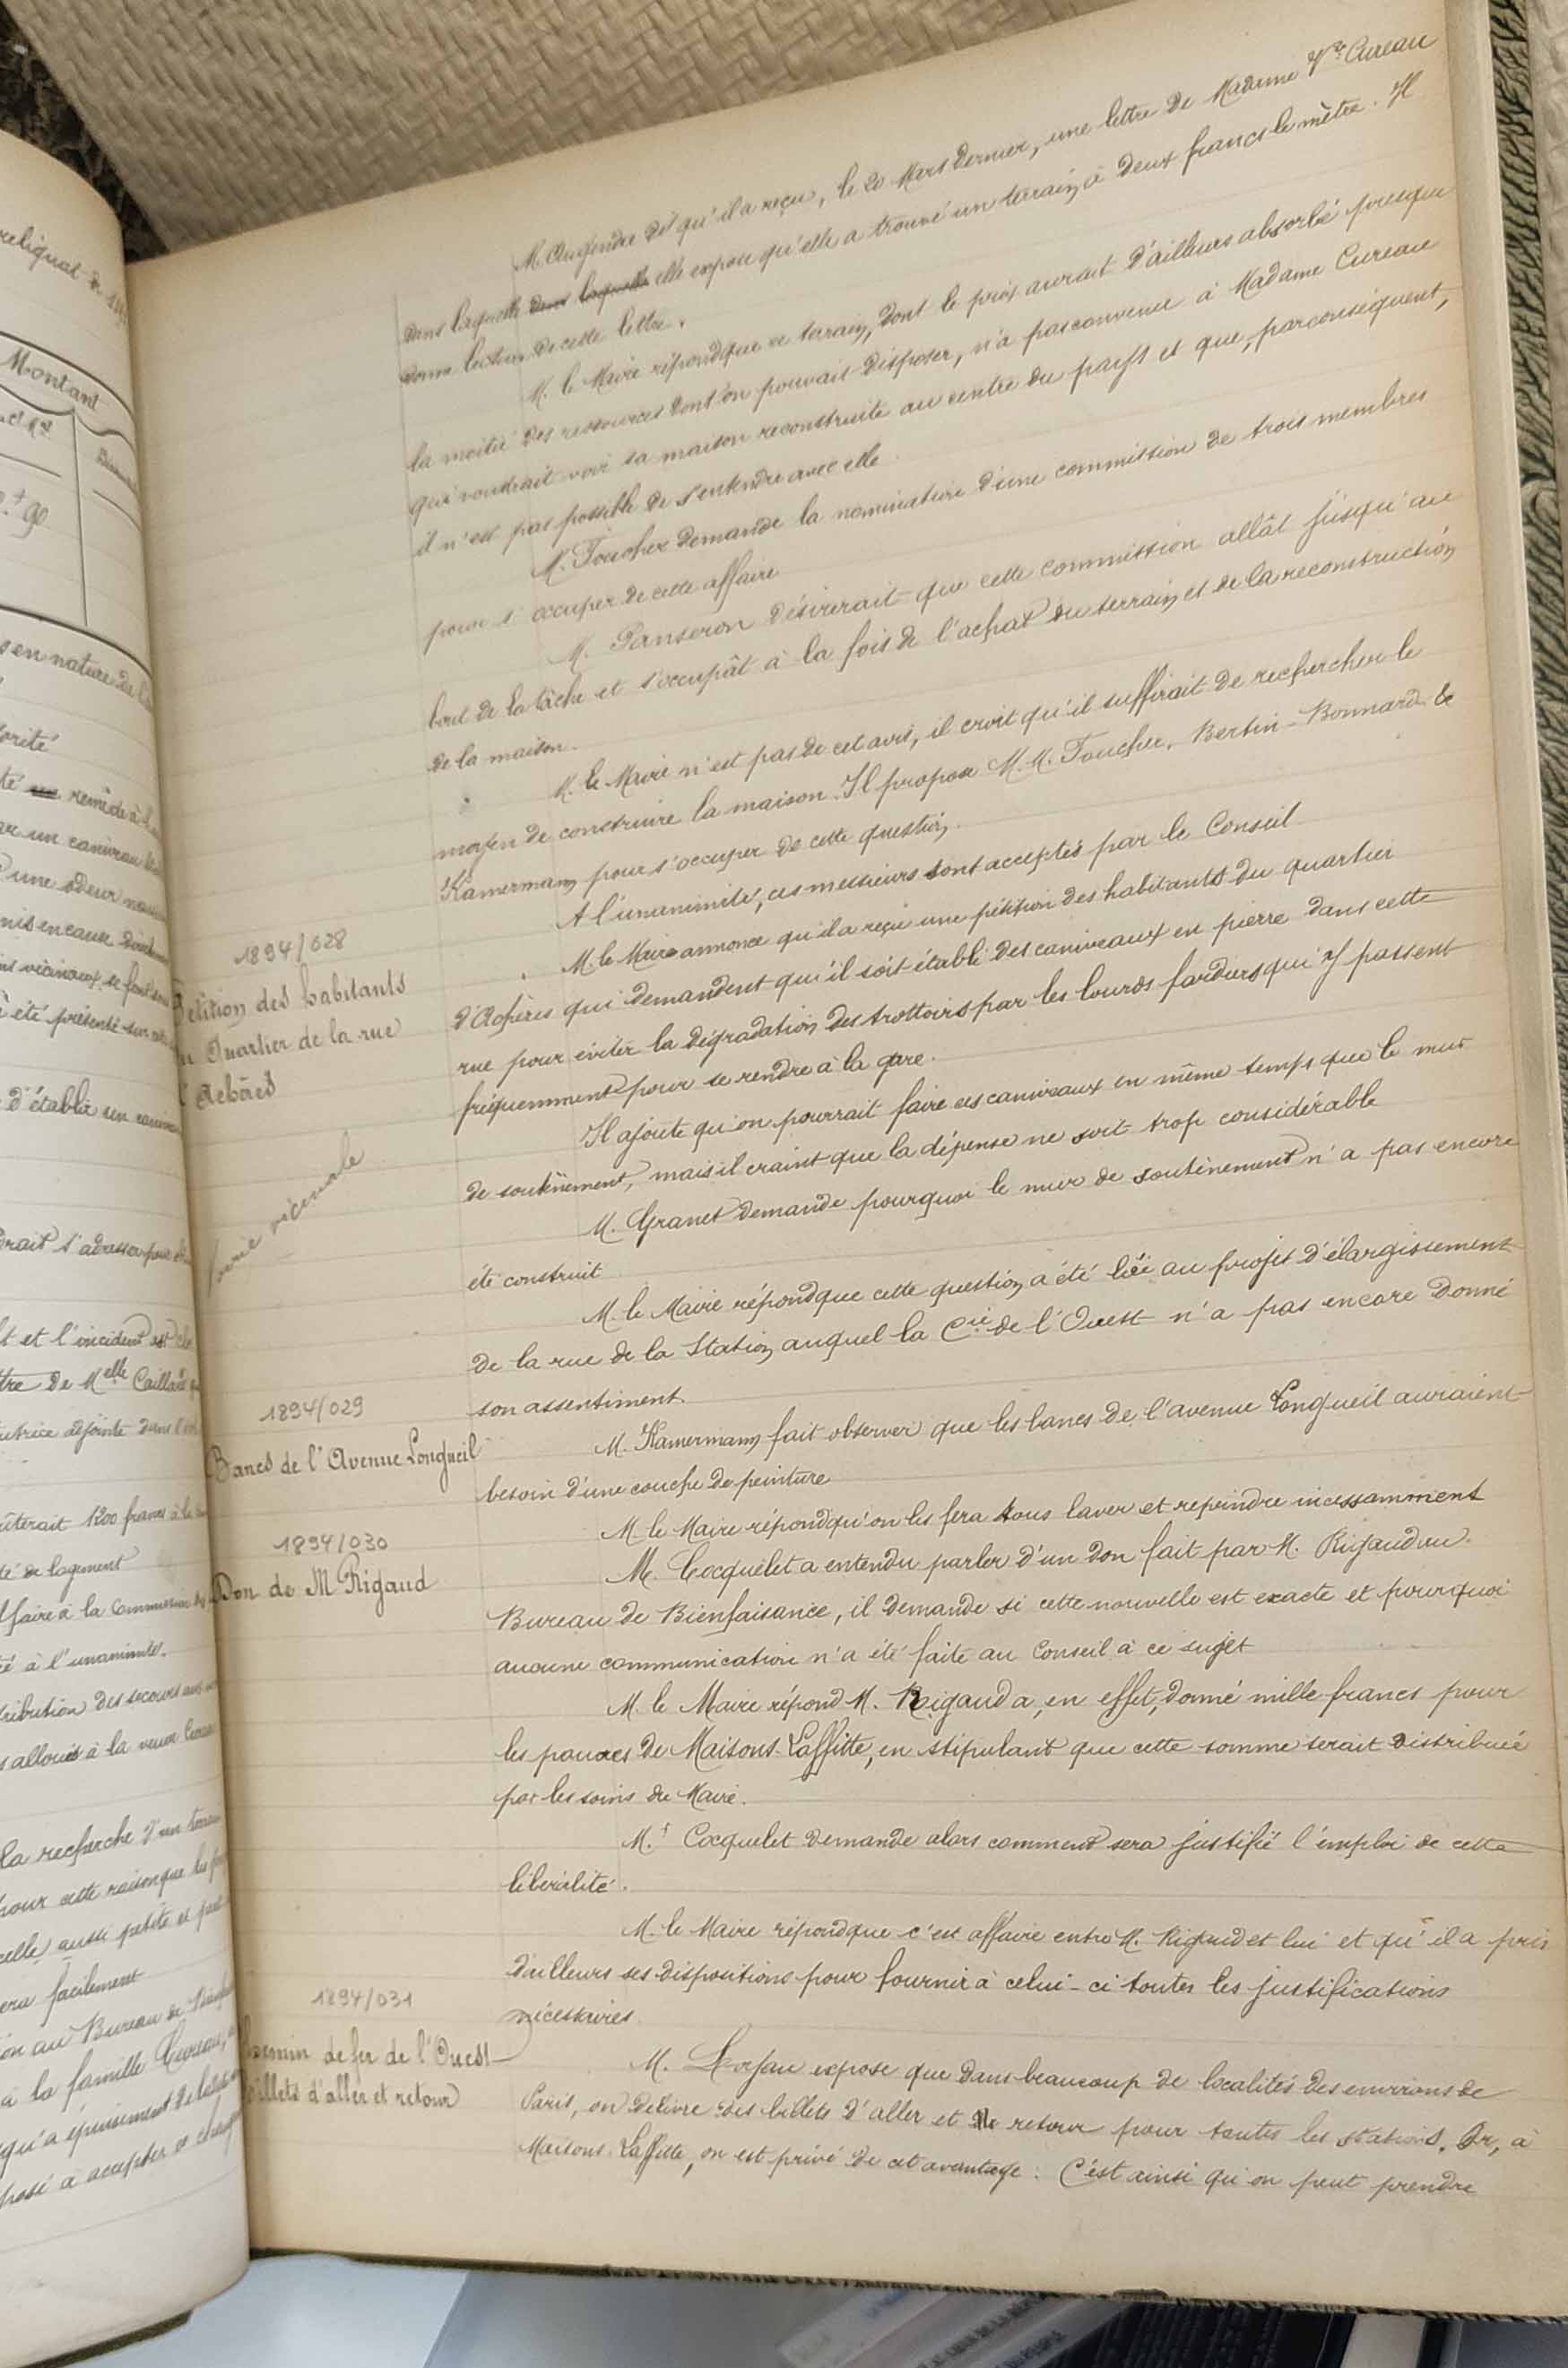 M. Augendre dit qu'il a reçu, le 20 Mars dernier, une lettre de Madame Vve Cureau
dans laquelle dans laquelle elle expose qu'elle a trouvé un terrain à deux francs le mètre. Il
donne lecture de cette lettre.
M. le Maire répond que ce terrain, dont le prix aurait d'ailleurs absorbé presque
la moitié des ressources dont on pouvait disposer, n'a pas convenu à Madame Cureau
qui voudrait voir sa maison reconstruite au centre du pays et que, par conséquent,
il n'est pas possible de s'entendre avec elle.
M. Toucher demande la nomination d'une commission de trois membres
pour s'occuper de cette affaire
M. Panseron désirerait que cette commission allât jusqu'au
bout de la tâche et s'occupât à la fois de l'achat du terrain et de la reconstruction
de la maison.
M. le Maire n'est pas de cet avis, il croit qu'il suffirait de rechercher le
moyen de construire la maison. Il propose M.M. Toucher, Bertin-Bonnard &
Kamermann pour s'occuper de cette question.
A l'unanimité, ces messieurs sont acceptés par le Conseil
1894/028
Pétition des habitants
du Quartier de la rue
d'Achères
M. le Maire annonce qu'il a reçu une pétition des habitants du quartier
d'Achères qui demandent qu'il soit établi des caniveaux en pierre dans cette
rue pour éviter la dégradation des trottoirs par les lourds fardiers qui y passent
fréquemment pour se rendre à la gare.
voirie vicinale
Il ajoute qu'on pourrait faire ces caniveaux en même temps que le mur
de soutènement, mais il craint que la dépense ne soit trop considérable
M. Granet demande pourquoi le mur de soutènement n'a pas encore
été construit
M. le Maire répond que cette question a été liée au projet d'élargissement
de la rue de la Station auquel la Cie de l'Ouest n'a pas encore donné
son assentiment.
1894/029
Bancs de l'Avenue Longueil
M. Kamermann fait observer que les bancs de l'avenue Longueil auraient
besoin d'une couche de peinture
M. le Maire répond qu'on les fera tous laver et repeindre incessamment
1894/030
Don de M Rigaud
M. Cocquelet a entendu parler d'un don fait par M. Rigaud au
Bureau de Bienfaisance, il demande si cette nouvelle est exacte et pourquoi
aucune communication n'a été faite au Conseil à ce sujet
M. le Maire répond M. Rigaud a, en effet, donné mille francs pour
les pauvres de Maisons-Laffitte, en stipulant que cette somme serait distribuée
par les soins du Maire.
M. Cocquelet demande alors comment sera justifié l'emploi de cette
libéralité.
M. le Maire répond que c'est affaire entre M. Rigaud et lui et qu'il a pris
d'ailleurs ses dispositions pour fournir à celui-ci toutes les justifications
nécessaires.
1894/031
Chemin de fer de l'Ouest
Billets d'aller et retour
M. expose que dans beaucoup de localités des environs de
Paris, on délivre des billets d'aller et retour pour toutes les stations. Or, à
Maisons-Laffitte, on est privé de cet avantage : C'est ainsi qu'on peut prendre
reliquat de
Montant
s en nature de
remède à
par un caniveau
une odeur
nis en cause
vicinaux, se
été présenté sur
d'établir un
drait s'adresser pour
et l'incident est
lettre de Melle Caillard
adjointe dans
ûterait 1200 francs à la
de logement
affaire à la Commission
é à l'unanimité.
distribution des secours
alloués à la veuve
la recherche d'un terrain
pour cette raison que les
celle aussi petite et
facilement
au Bureau de
à la famille Cureau,
qu'à épuisement de
posé à accepter